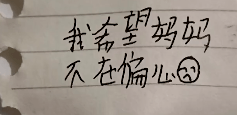 我希望妈妈
不在偏心☹